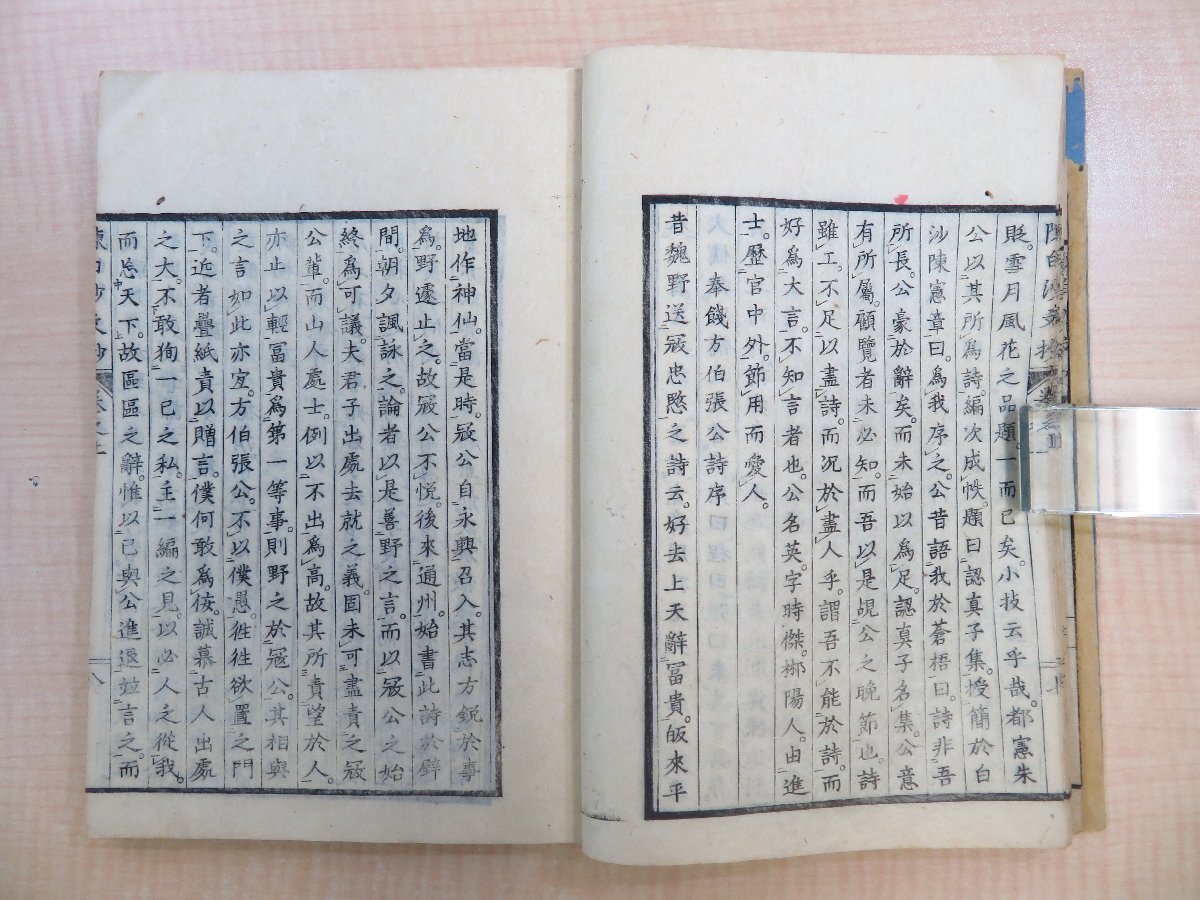 陳白沙文抄
貶。雪月風花之品題。一而已矣。小技云乎哉。都憲朱
公以其所爲詩。編次成帙。題曰認真子集。授簡於白
沙陳憲章曰。爲我序之。公昔語我於蒼梧曰。詩非吾
所長。公豪於辭矣。而未始以爲足。認真子名集。公意
有所屬。顧覽者未必知。而吾以是覘公之晚節也。詩
雖工。不足以盡詩。而況於盡人乎。謂吾不能於詩。而
好爲大言。不知言者也。公名英。字時傑。郴陽人。由進
士。歷官中外。節用而愛人。
奉餞方伯張公詩序
昔魏野送寇忠愍之詩云。好去上天辭冨貴。皈來平
地作神仙。當是時。寇公自永興召入。其志方銳於事
爲。野遽止之。故寇公不悅。後來通州。始書此詩於壁
間。朝夕諷詠之。論者以是善野之言。而以寇公之始
終爲可議。夫君子出處去就之義。固未可盡責之寇
公輩。而山人處士。例以不出爲高。故其所責望於人。
亦止以輕冨貴爲第一等事。則野之於寇公。其相與
之言如此亦宜。方伯張公。不以僕愚。徃徃欲置之門
下。近者疊紙責以贈言。僕何敢爲佞。誠慕古人出處
之大。不敢狥一己之私。主一編之見。以必人之從我。
而忘天下。故區區之辭。惟以已與公進退竝言之。而
陳白沙文抄